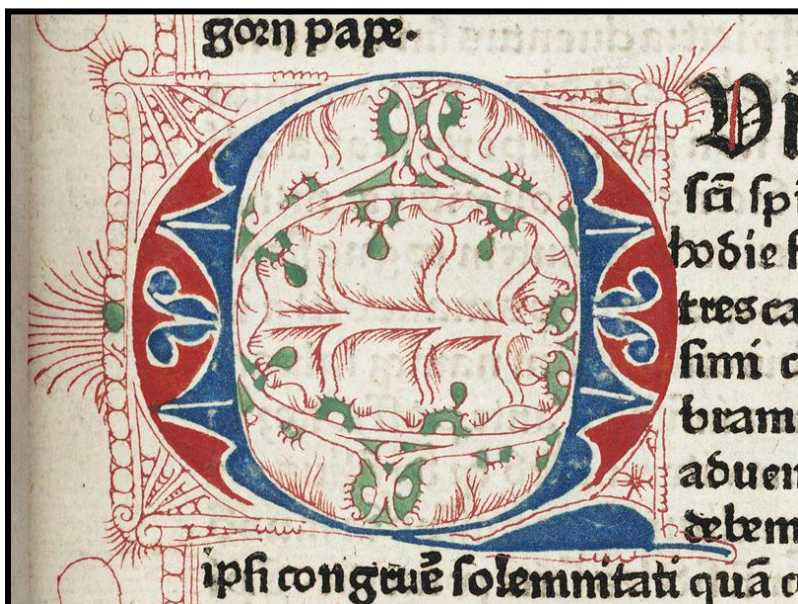 gorij pape.
QVi
ſcī ſpi
hodie f
tres ca
ſimi c
bram
aduen
debem
ipſi congruē ſolemnitati quā c